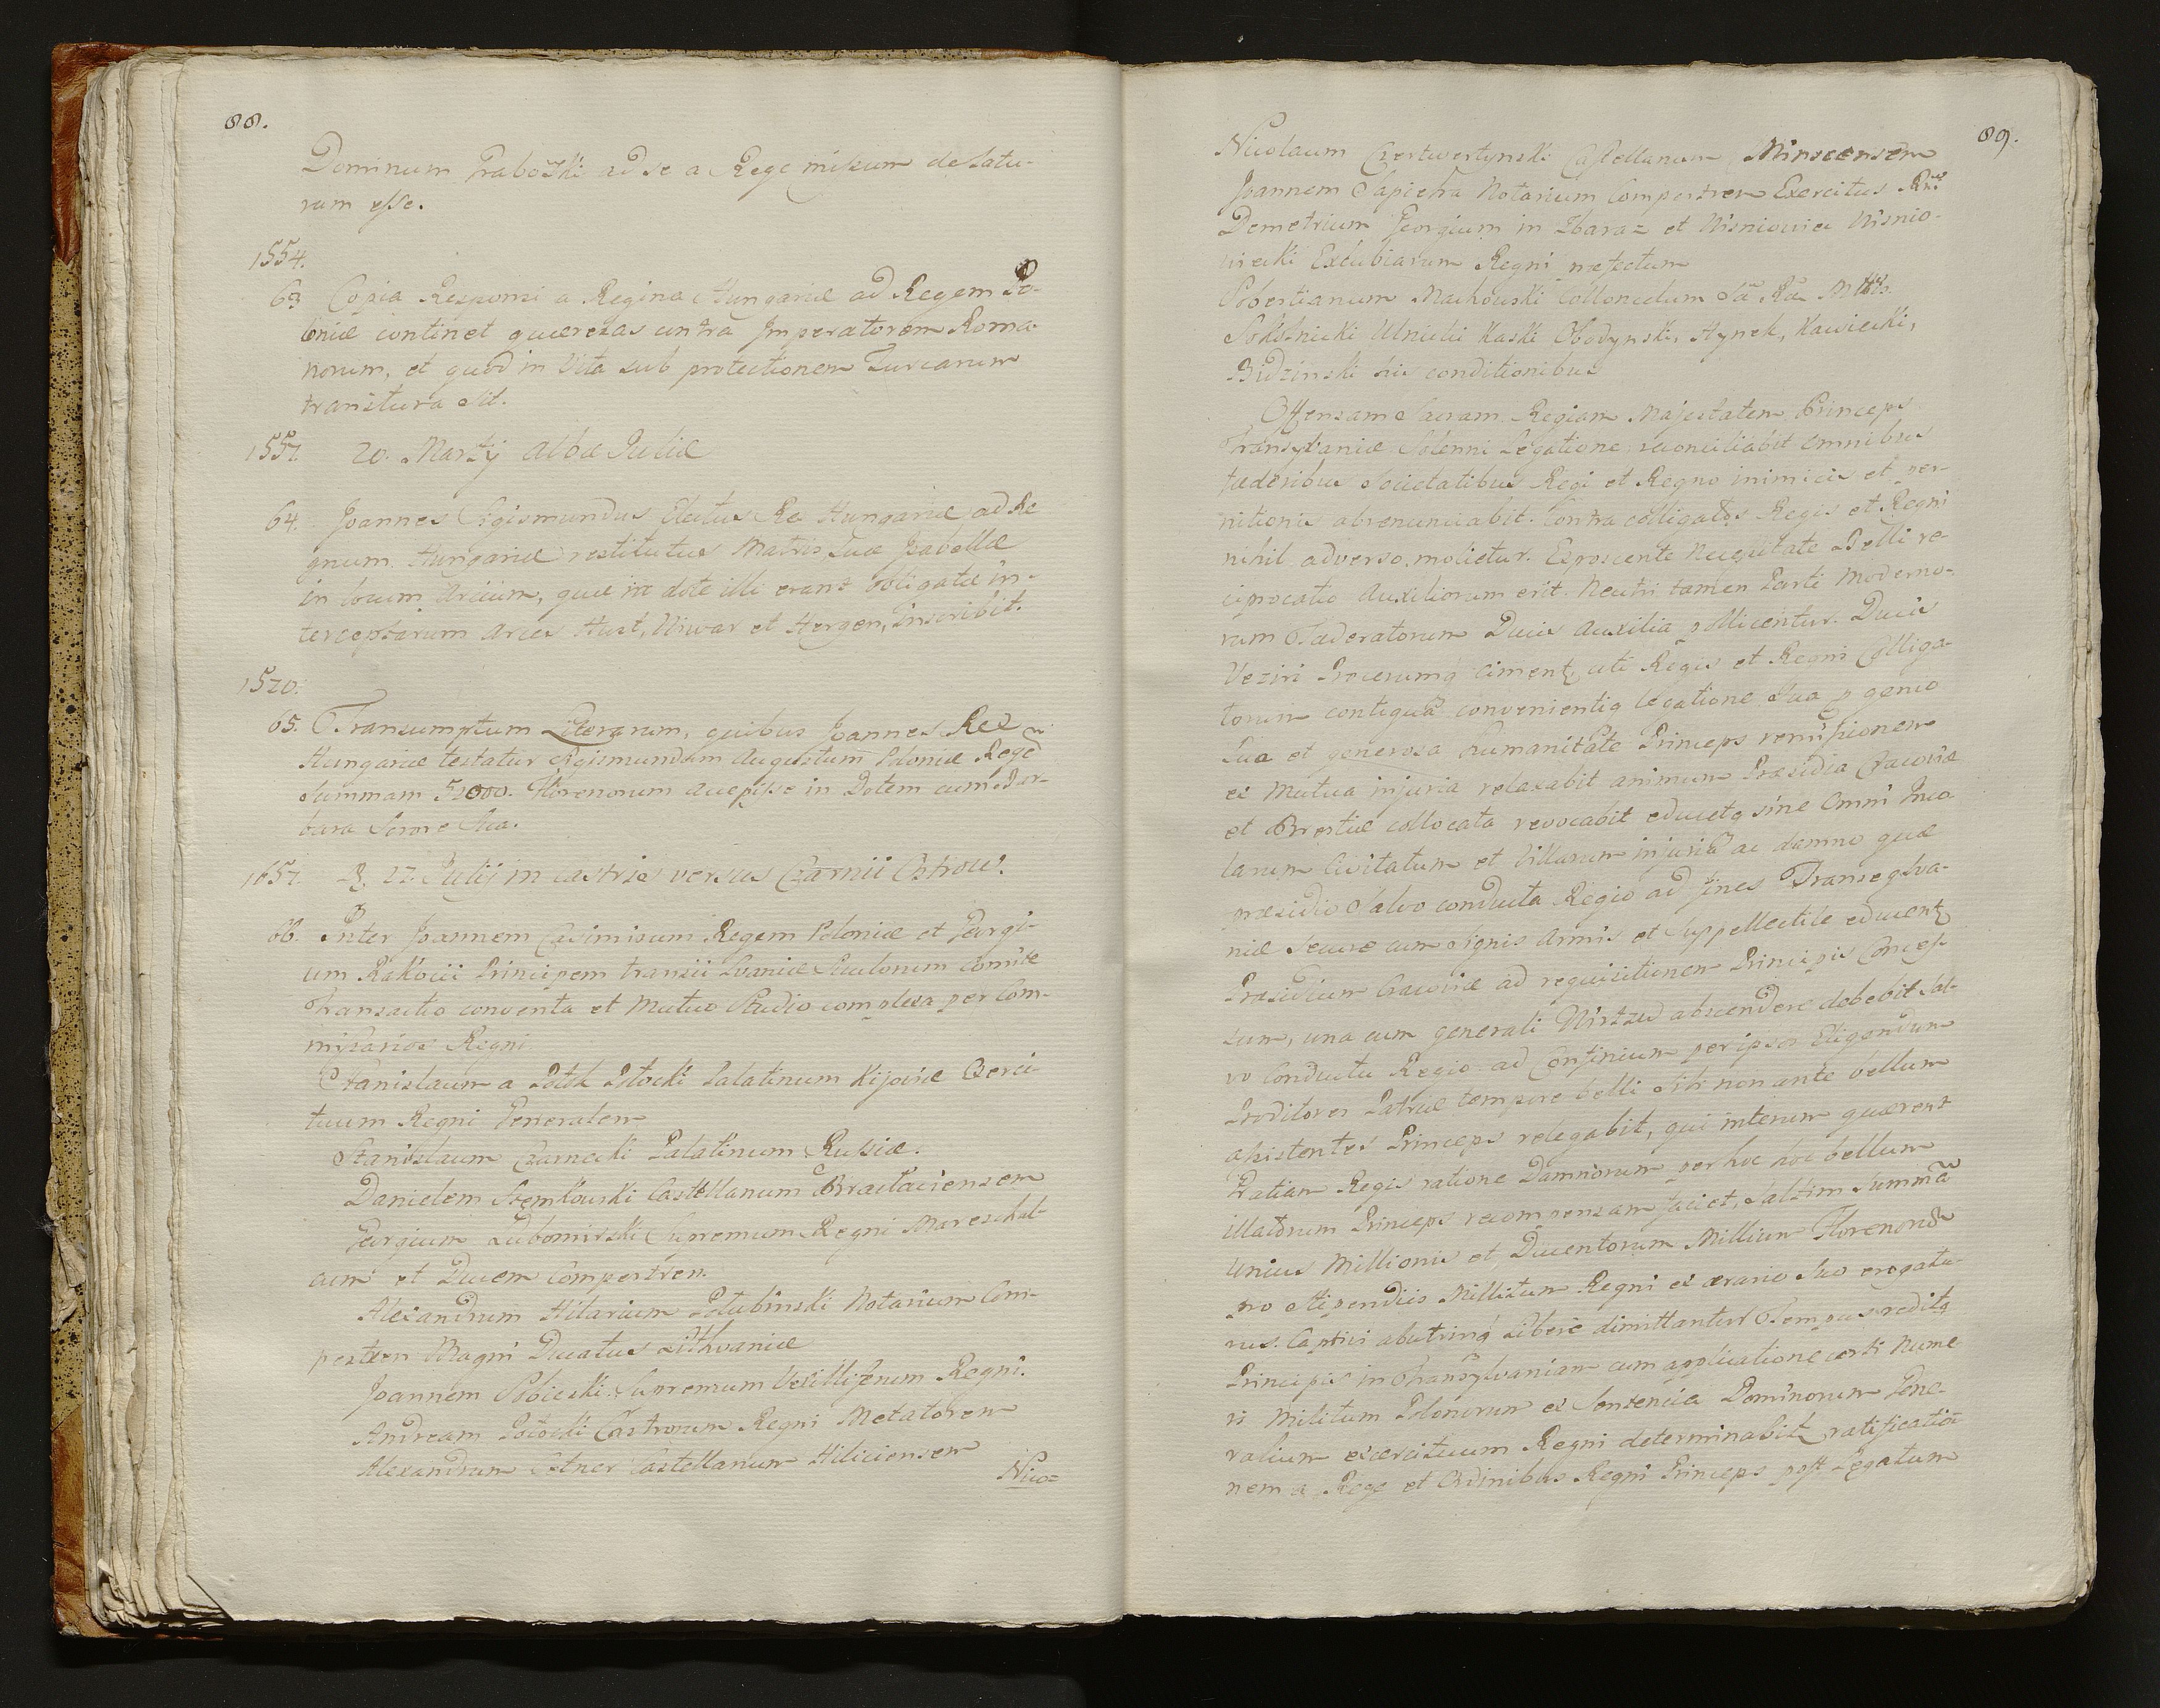 88.
Dominum Graboski ad se a Rege missum delatu-
rum esse.
1554.
63 Copia Responsi a Regina Hungariæ ad Regem Po-
loniæ continet quærezas contra Imperatorem Roma-
norum, et quod in Vita sub protectionem Turcarum
transitura sit.
1557. 20. Martij Alba Juliæ
64. Joannes Sigismundus Electus Rex Hungariæ, ad Re
gnum Hungariæ restitutus Matris Suæ Isabellæ
in locum Arcium, quæ in dote illi erant obligatæ in-
terceptarum arces Hust, Uiwar et Hergen, Inscribit.
1520.
65. Transumptum Literarum, quibus Joannes Rex
Hungariæ testatur Sigismundum Augustum Poloniæ Rege
Summam 52000. Florenorum accepisse in Dotem cum Bar-
bara Sorore Sua.
1657. D. 22 Julij in castris versus Czarnii Ostrow.
66. Inter Joannem Casimirum Regem Poloniæ et Georgi-
um Rakocii Principem transii Lvaniæ Siculorum Comite
Transactio conventa et mutuo Studio complexa per Com-
missarios Regni
Stanislaum a Potok Potocki Palatinum Kijoviæ Exerci-
tuum Regni Generalem
Stanislaum Czarnecki Palatinum Russiæ.
Danielem Stemkowski Castellanum Braclaviensem
Georgium Lubomirski Supremum Regni Mareschal-
cum et Ducem Campestrem.
Alexandrum Hilarium Polubinski Notarium Cam-
pestrem Magni Ducatus Lithvaniæ
Joannem Sobieski Supremum Vexilliferum Regni.
Andream Potocki Castrorum Regni Metatorem
Alexandrum Cetner Castellanum Haliciensem
Nico=
89.
Nicolaum Czertwertynski Castellanum Minscensem
Joannem Sapieha Notarium Campestrem Exercitus
Demetrium Georgium in Zbaraz et Wisniowiec Wisnio-
wiecki Excubiarum Regni præfectum
Sobestianum Machowski Collonelum Sa Ra Mttis
Sokolnicki Ulnicki Kaski Obodynski, Hynek, Kawiecki,
Budzinski his conditionibus
Offensam Sacram Regiam Majestatem Princeps
Transylvaniæ Solenni Legatione reconciliabit omnibus
fœderibus Societatibus Regi et Regno inimicis et per-
nitionis abrenunciabit. Contra colligatos Regis et Regni
nihil adverso molietur. Exposcente necessitate Belli re-
ciprocatio Auxiliorum erit. Neutri tamen Parti moderno-
rum Fœderatorum Ducis Auxilia pollicentur. Ducis
Veziri Procerumq ciment, uti Regis et Regni Colliga-
torum contiguâ convenientiq legatione Sua p genio
Sua et generosa humanitate Princeps remissionem
ex mutua injuria relaxabit animum Præsidia Cracoviæ
et Brestiæ collocata revocabit educetq sine Omni Inco
larum Civitatum et Villarum injuriâ ac damno quæ
præsidio Salvo conducta Regio ad fines Transegsva-
niæ secure cum Signis Armis et Suppellectile educent
Præsidium Cracoviæ ad requisitionem Principis Conces-
sum, una cum generali Wirtzed abscendere debebit Sal-
vo Conductu Regio ad Confinium per ipsos Eligendum
Proditores Patriæ tempore belli Sibi non ante bellum
assistentes Princeps relegabit, qui interum quærent
Gratiam Regis ratione Damnorum per hoc hoc bellum
illatorum Princeps recompensam faciet, Saltim Summâ
Unius Millionis et Ducentorum Millium Florenoru
pro Stipendiis Militum Regni ex ærario Suo erogatu-
rus. Captivi abutrinq Libere dimittantur Tempus reditq
Principis in Transylvaniam cum applicatione certi nume-
ri Militum Polonorum ex Sentencia Dominorum Gene-
ralium exercituum Regni determinabit, ratificatio-
nem a Rege et Ordinibus Regni Princeps post Legatum